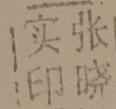 张晓
实印